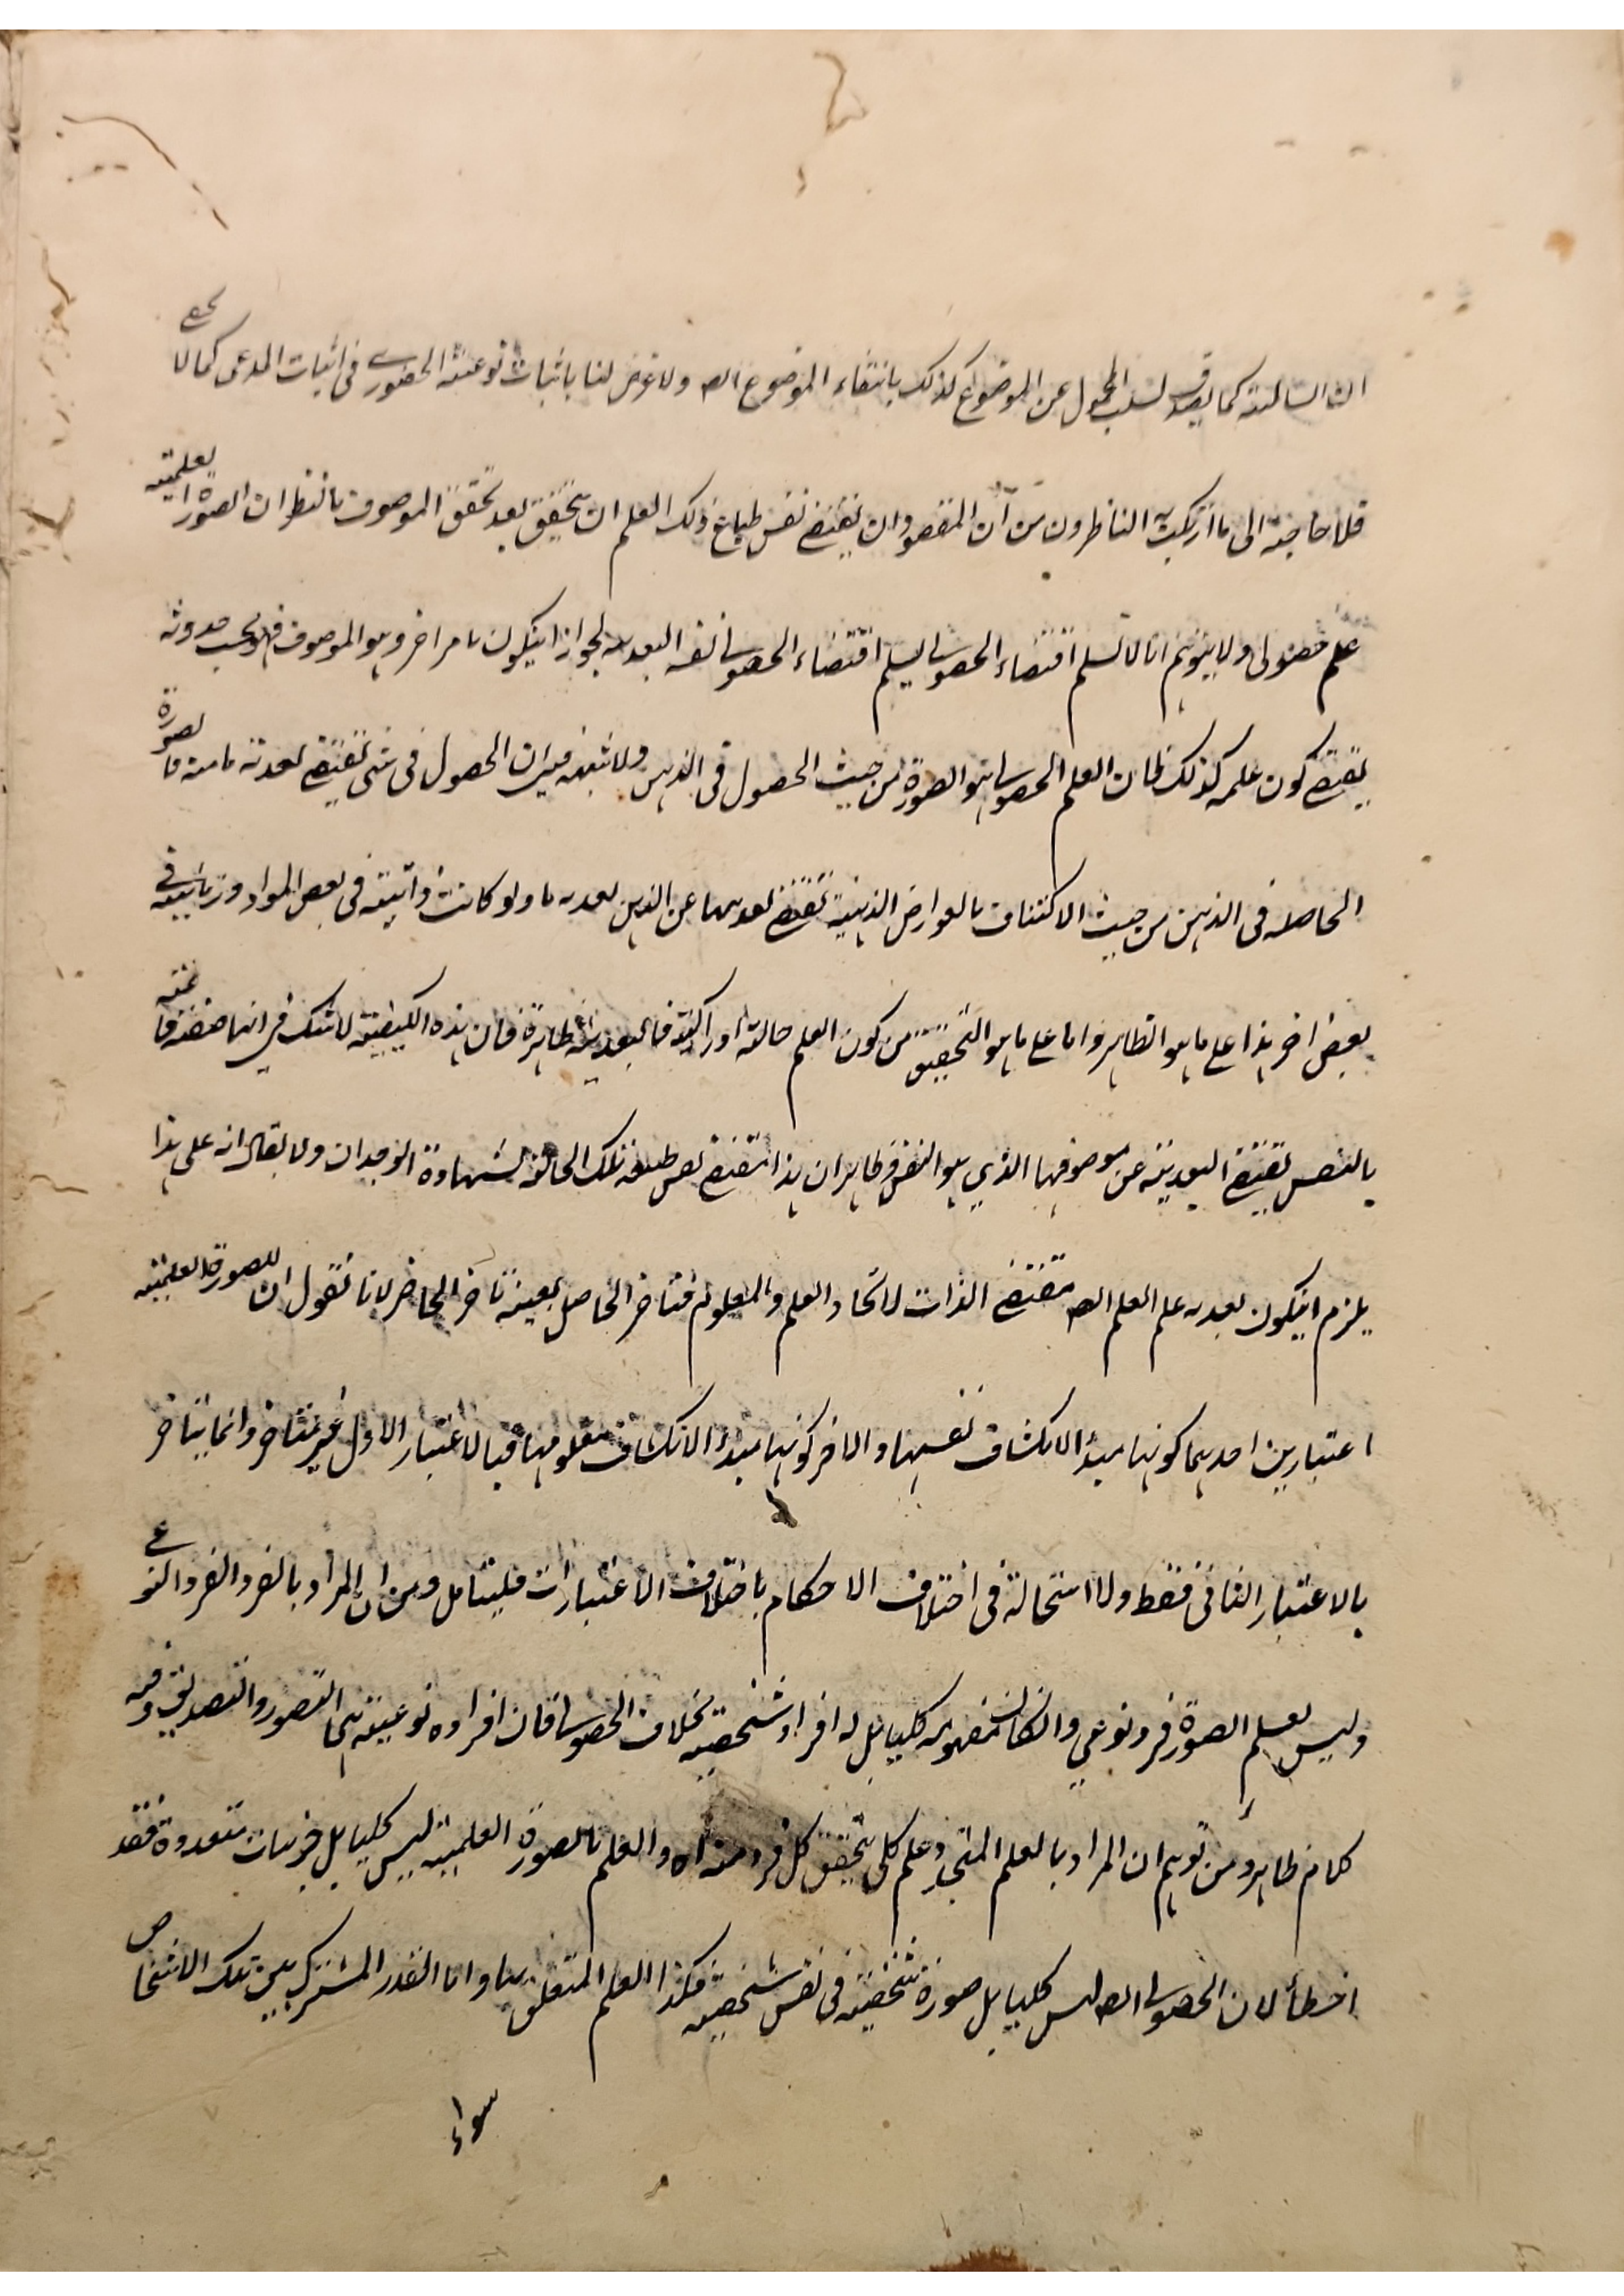 ان السالبة كما يصدق لسلب المحمول عن الموضوع كذلك بانتفاء الموضوع ايضا ولا غرض لنا باثبات نوعية الحضوري في اثبات المدعى كما لا يخفى
فلا حاجة الى ما ارتكبه الناظرون من ان المقصود ان يقتضي نفس طباع ذلك العلم ان يتحقق بعد تحقق الموصوف بالنظر ان الصورة العلمية
علم حضولى ولا يتوهم انا لا نسلم اقتضاء الحصولى ليسلم اقتضاء الحصولى نفسه البعدية لجواز ان يكون بامر اخر وهو الموصوف فهو بحسب حدوثه
يقتضي كون علمه كذلك فان العلم الحصولى هو الصورة من حيث الحصول في الذهن ولا شبهة في ان الحصول في شئ يقتضي بعدية ما منه فالصورة
الحاصلة في الذهن من حيث الاكتناف بالعوارض الذهنية تقتضي بعديتها عن الذهن بعدية ما ولو كانت ذاتية في بعض المواد وزمانية في
بعض اخر هذا على ما هو الظاهر واما على ما هو التحقيق من كون العلم حالة ادراكية فالبعدية ظاهرة فان هذه الكيفية لا شك في انها صفة قائمة
بالنفس تقتضي البعدية عن موصوفها الذي هو النفس وظاهر ان هذا مقتضى نفس طبيعة تلك الحالة لشهادة الوجدان ولا يقال انه على هذا
يلزم ان يكون بعدية علم العلم ايضا مقتضى الذات لاتحاد العلم والمعلوم فتاخر الحاصل بعينه تاخر الحاضر لانا نقول ان للصورة العلمية
اعتبارين احدهما كونها مبدأ لانكشاف نفسها والاخر كونها مبدأ لانكشاف معلومها فبالاعتبار الاول غير متاخر وانما يتاخر
بالاعتبار الثاني فقط ولا استحالة في اختلاف الاحكام باختلاف الاعتبارات فليتامل ومن ان المراد بالفرد الفرد النوعي
وليس لعلم الصورة فرد نوعي وان كان مفهومه كليا بل له افراد شخصية بخلاف الحصولى فان افراده نوعية هما التصور والتصديق وفيه
كلام ظاهر ومن توهم ان المراد بالعلم المتجدد علم كلي يتحقق كل فرد منه اه والعلم بالصورة العلمية ليس كليا بل جزئيات متعددة فقد
اخطأ لان الحصولى ايضا ليس كليا بل صورة شخصية في نفس شخصية فكذا العلم المتعلق بها واما القدر المشترك بين تلك الاشخاص
سواء